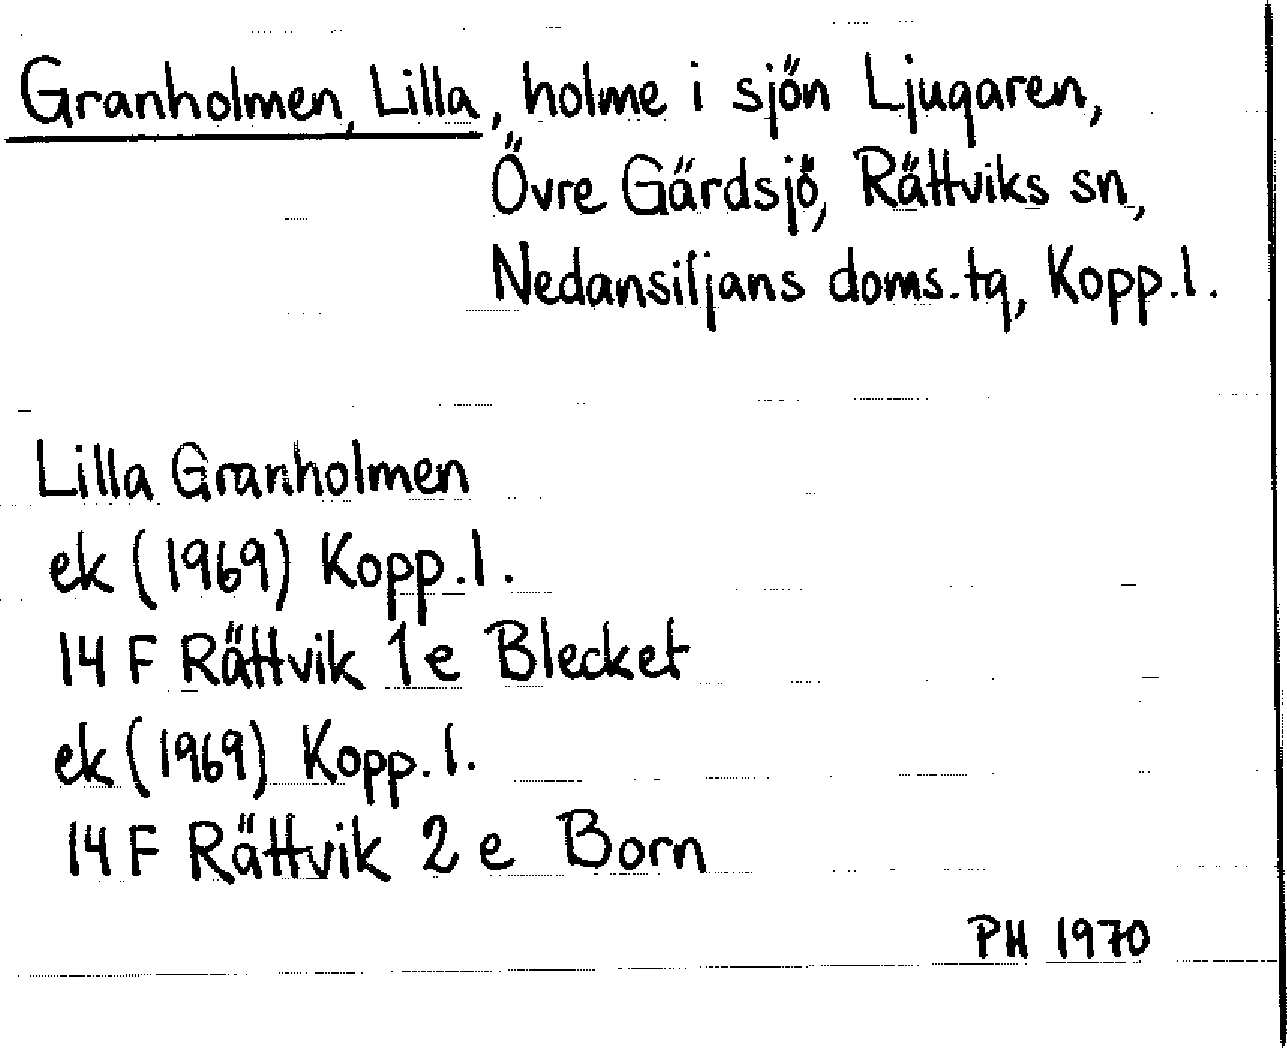 Granholmen, Lilla, holme i sjön Ljugaren,
Övre Gärdsjö, Rättviks sn,
Nedansiljans doms.tg, Kopp.l.
Lilla Granholmen
ek (1969) Kopp.l.
14 F Rättvik 1e Blecket
ek (1969) Kopp.l.
14 F Rättvik 2 e Born
PH 1970